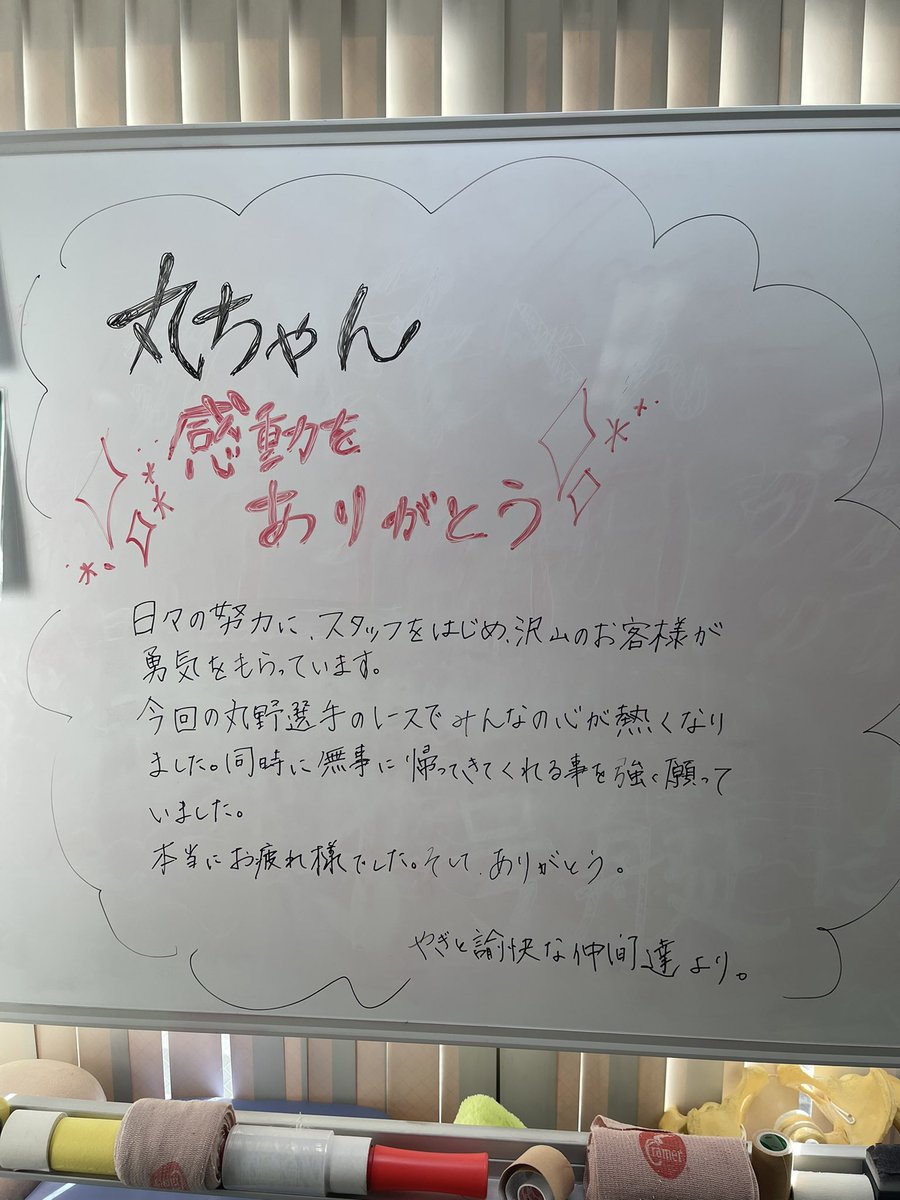 丸ちゃん
感動を
ありがとう
日々の努力に、スタッフをはじめ、沢山のお客様が
勇気をもらっています。
今回の丸野選手のレースでみんなの心が熱くなり
ました。同時に無事に帰ってきてくれる事を強く願って
いました。
本当にお疲れ様でした。そして、ありがとう。
やぎと諭快な仲間達より。
cramer